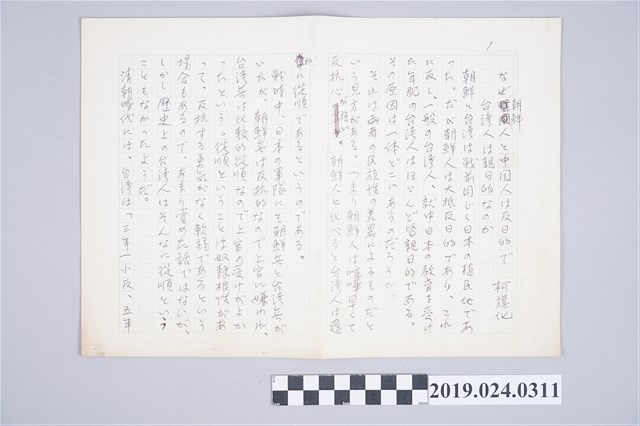 1
なぜ朝鮮人と中国人は反日的で
台湾人は親日的なのか
柯旗化
朝鮮と台湾は戦前同じく日本の植民地であ
った。だが朝鮮人は大抵反日的であり、これ
に反し、一般の台湾人、就中日本の教育を受け
た年配の台湾人はほとんど皆親日的である。
その原因は一体どこにあるのだろうか。
それは両者の民族性の差異によるものだと
いう見方がある。つまり朝鮮人は喧嘩早くて
反抗心が強い。朝鮮人と比べると台湾人は遥
かに従順であるというのである。
戦時中、日本の軍隊にも朝鮮兵と台湾兵が
いたが、朝鮮兵は反抗的なので上官に嫌われ、
台湾兵は比較的従順なので上官の受けがよか
ったという。従順ということは奴隷根性があ
って、反抗する勇気がなく軟弱であるという
場合もあるので、あまり賞めた話ではないが、
しかし歴史上の台湾人はそんなに従順という
こともなかったようだ。
清朝時代には、台湾は「三年一小反、五年
2019.024.0311